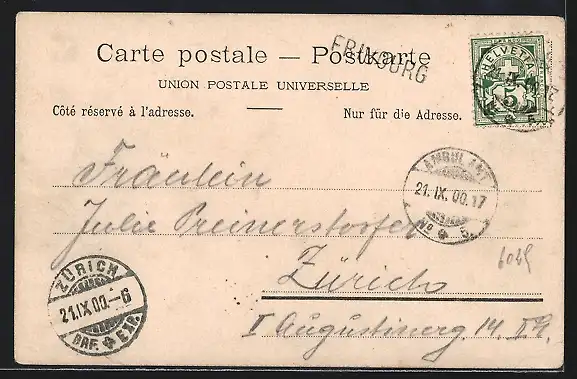 Carte postale — Postkarte
FRIBOURG
UNION POSTALE UNIVERSELLE
Côté réservé à l'adresse.
Nur für die Adresse.
HELVETIA
5
AMBULANT
21.IX.00.17
No 5
Fräulein
Julie Preinerstorfer
Zürich
I Augustinerg. 14.
6049
ZÜRICH
21.IX.00.-6
BRF. EXP.